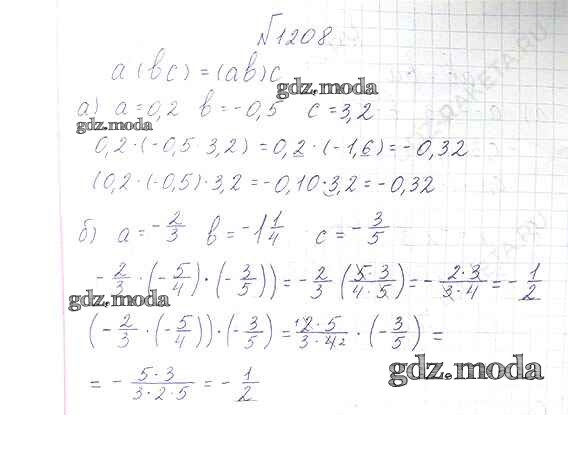 №1208
a(bc)=(ab)c
gdz.moda
а) a=0,2 b=-0,5 c=3,2
gdz.moda
0,2·(-0,5·3,2)=0,2·(-1,6)=-0,32
(0,2·(-0,5)·3,2=-0,10·3,2=-0,32
б) a=-2/3 b=-1 1/4 c=-3/5
-2/3·(-5/4)·(-3/5))=-2/3(5·3/4·5)=-2·3/3·4=-1/2
gdz.moda
(-2/3·(-5/4))·(-3/5)=2·5/3·4·(-3/5)=
=-5·3/3·2·5=-1/2
gdz.moda